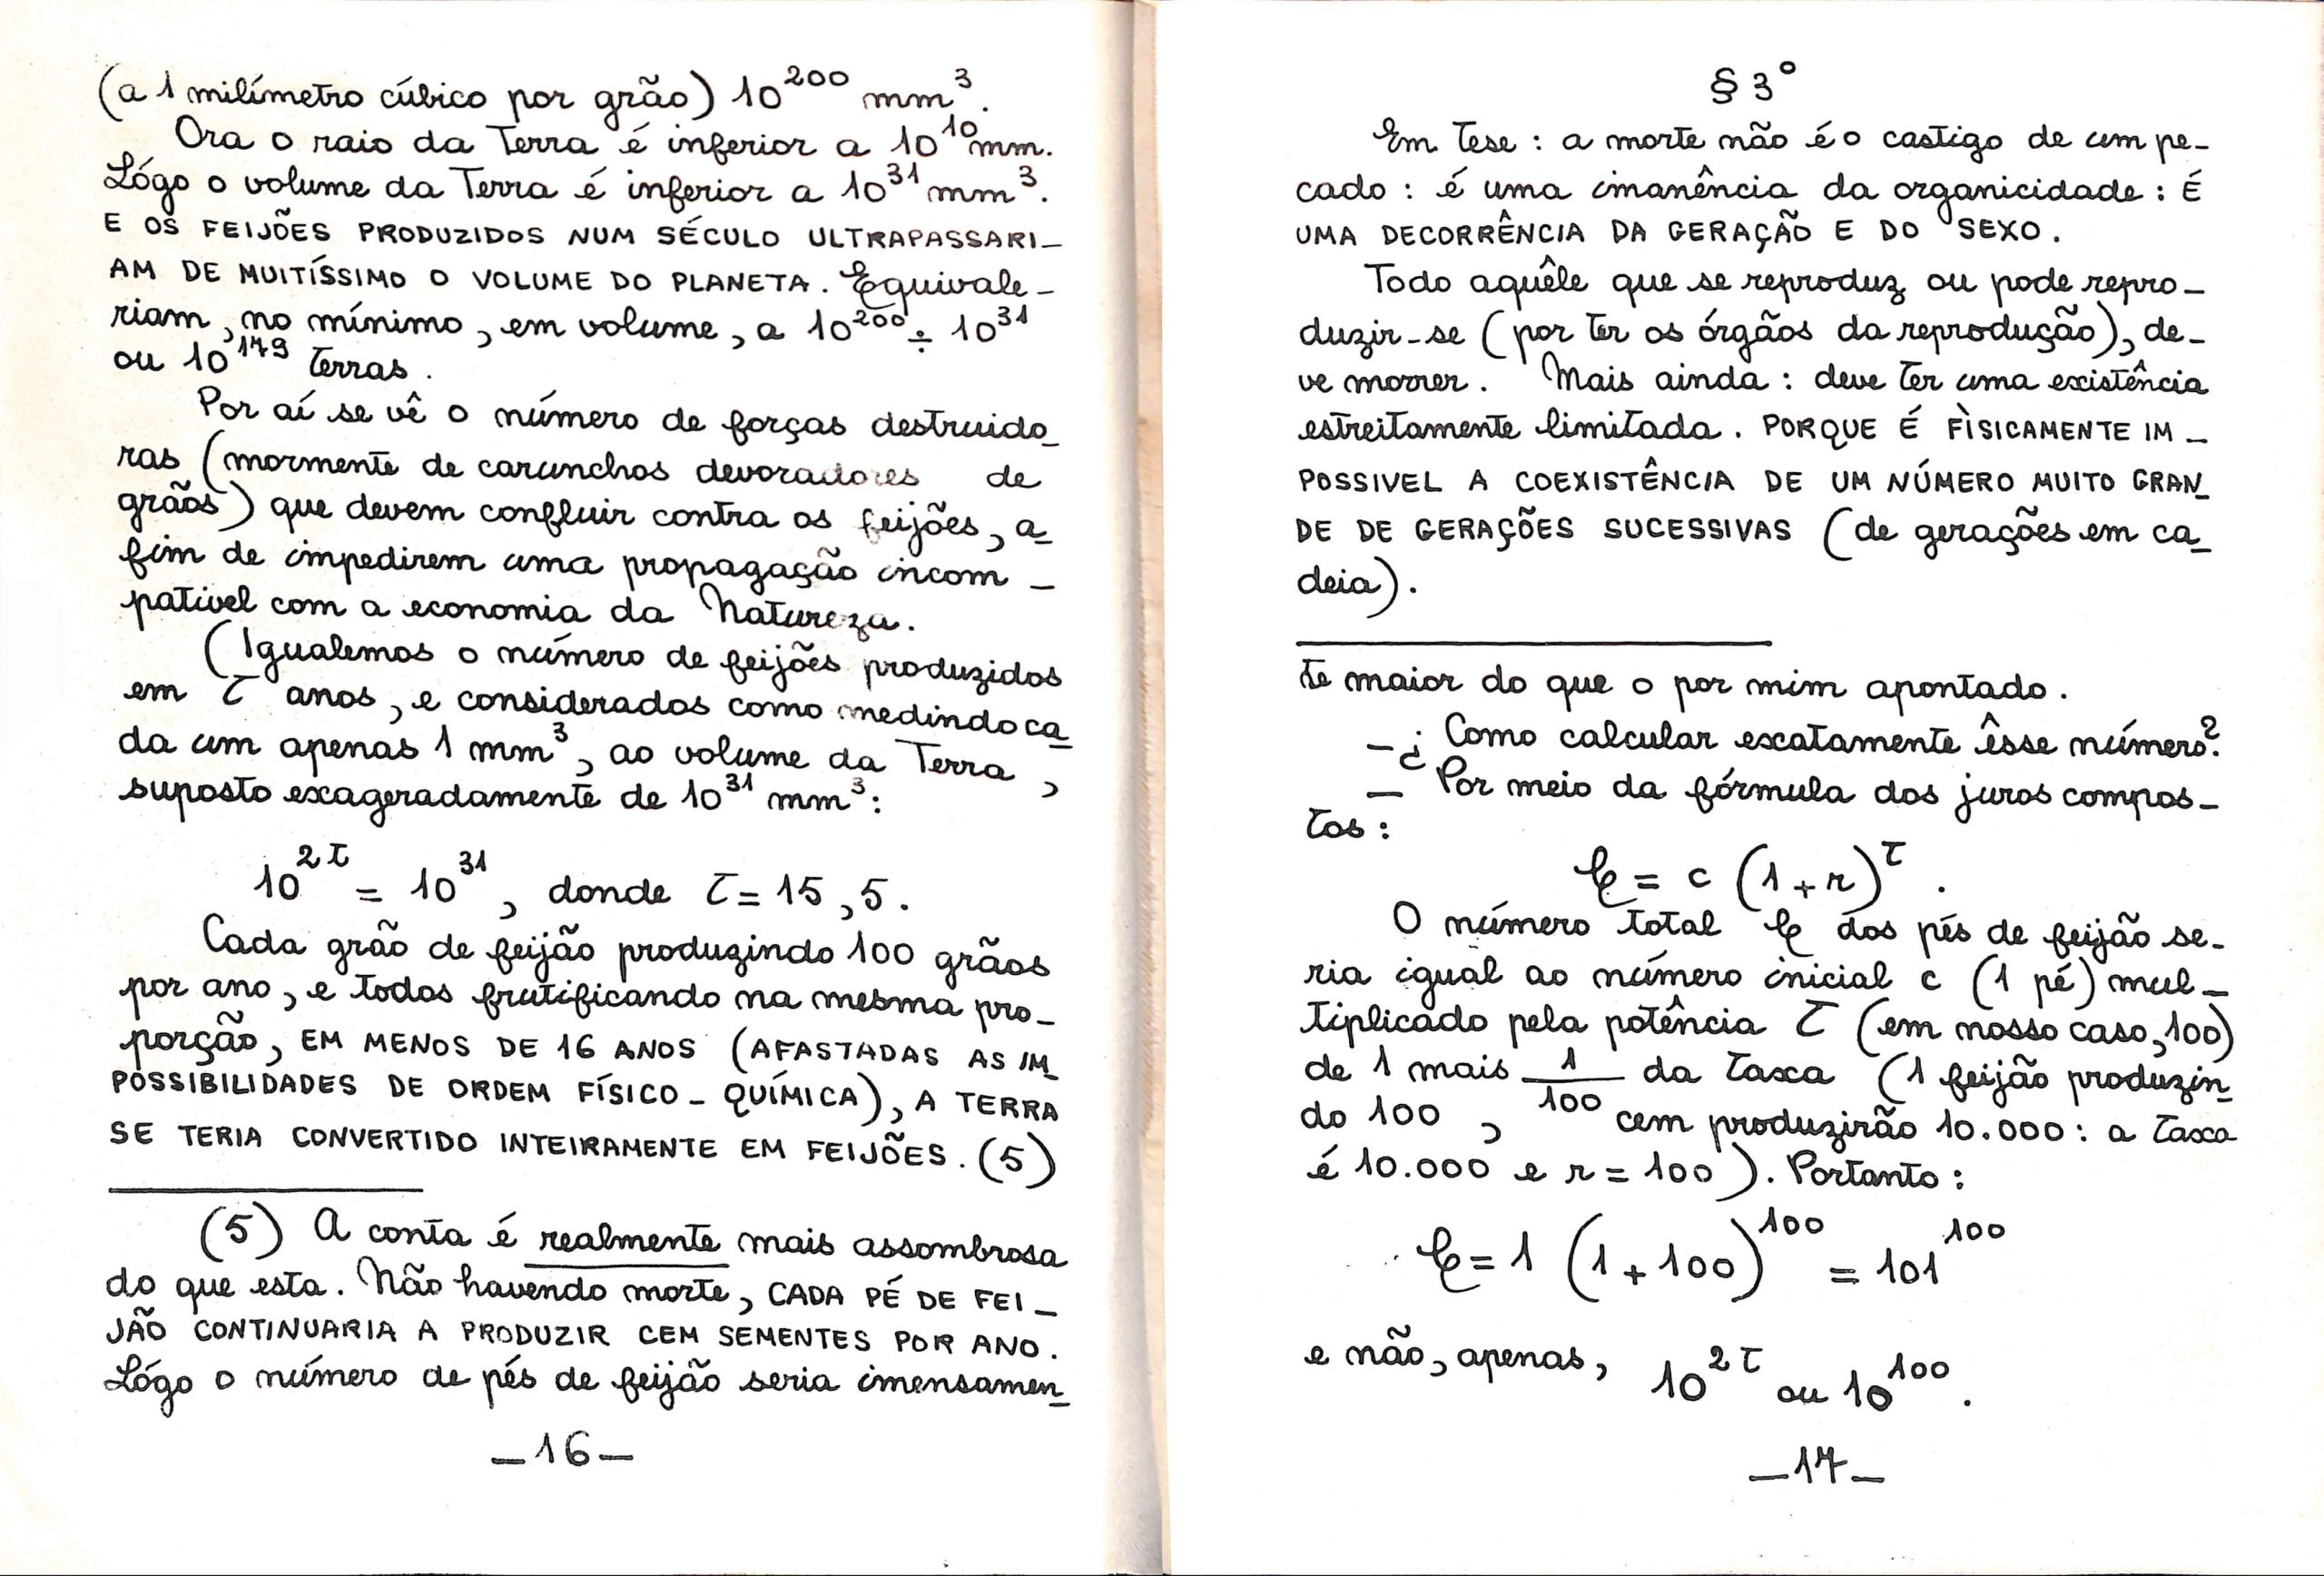 (a 1 milímetro cúbico por grão) 10²⁰⁰ mm³.
Ora o raio da Terra é inferior a 10¹⁰ mm.
Lógo o volume da Terra é inferior a 10³¹ mm³.
E OS FEIJÕES PRODUZIDOS NUM SÉCULO ULTRAPASSARI-
AM DE MUITÍSSIMO O VOLUME DO PLANETA. Equivale-
riam, no mínimo, em volume, a 10²⁰⁰ ÷ 10³¹
ou 10¹⁷⁹ Terras.
Por aí se vê o número de forças destruido-
ras (mormente de carunchos devoradores de
grãos) que devem confluir contra os feijões, a-
fim de impedirem uma propagação incom-
pativel com a economia da Natureza.
(Igualemos o número de feijões produzidos
em t anos, e considerados como medindo ca-
da um apenas 1 mm³, ao volume da Terra,
suposto exageradamente de 10³¹ mm³:
10²ᵗ = 10³¹, donde t = 15,5.
Cada grão de feijão produzindo 100 grãos
por ano, e todos frutificando na mesma pro-
porção, EM MENOS DE 16 ANOS (AFASTADAS AS IM-
POSSIBILIDADES DE ORDEM FÍSICO-QUÍMICA), A TERRA
SE TERIA CONVERTIDO INTEIRAMENTE EM FEIJÕES. (5)
(5) A conta é realmente mais assombrosa
do que esta. Não havendo morte, CADA PÉ DE FEI-
JÃO CONTINUARIA A PRODUZIR CEM SEMENTES POR ANO.
Lógo o número de pés de feijão seria imensamen-
-16-
§ 3º
Em Tese: a morte não é o castigo de um pe-
cado: é uma imanência da organicidade: É
UMA DECORRÊNCIA DA GERAÇÃO E DO SEXO.
Todo aquêle que se reproduz ou pode repro-
duzir-se (por ter os órgãos da reprodução), de-
ve morrer. Mais ainda: deve ter uma existência
estreitamente limitada. PORQUE É FÌSICAMENTE IM-
POSSIVEL A COEXISTÊNCIA DE UM NÚMERO MUITO GRAN-
DE DE GERAÇÕES SUCESSIVAS (de gerações em ca-
deia).
te maior do que o por mim apontado.
-¿ Como calcular exatamente êsse número?
- Por meio da fórmula dos juros compos-
tos:
C = c (1+r)ᵗ.
O número total C dos pés de feijão se-
ria igual ao número inicial c (1 pé) mul-
tiplicado pela potência t (em nosso caso, 100)
de 1 mais 1/100 da taxa (1 feijão produzin-
do 100, cem produzirão 10.000: a taxa
é 10.000 e r = 100). Portanto:
C = 1 (1+100)¹⁰⁰ = 101¹⁰⁰
e não, apenas, 10²ᵗ ou 10¹⁰⁰.
-17-